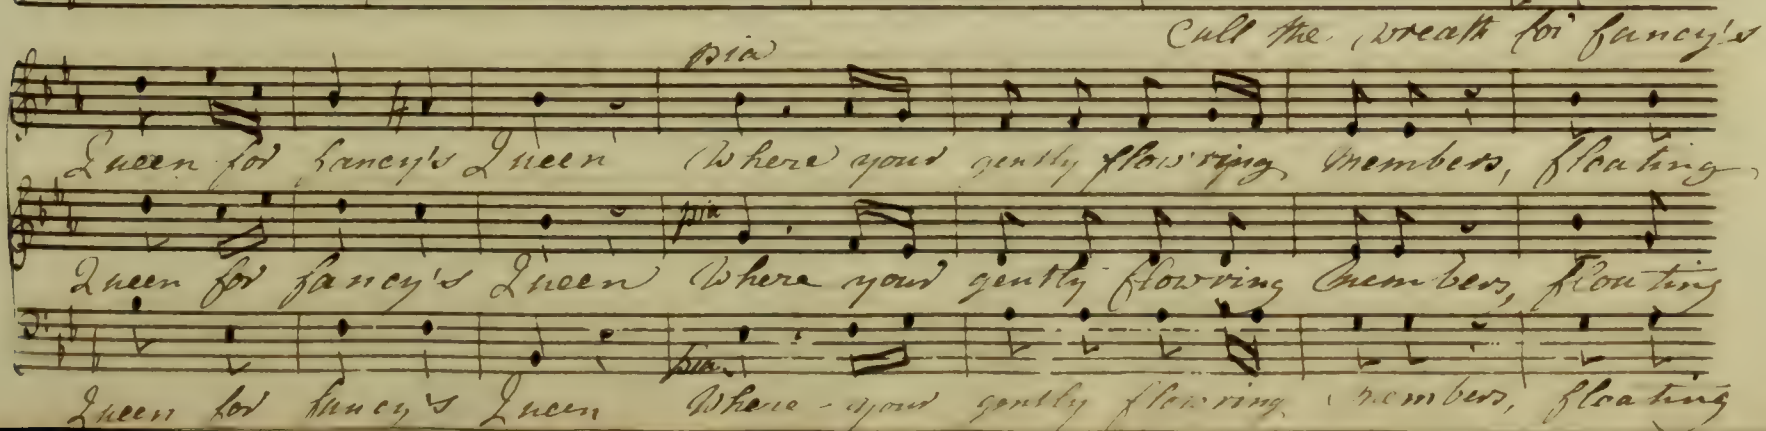 Cull the wreath for fancy's
pia
Queen for fancy's Queen Where your gently flow'ring members, floating
pia
Queen for fancy's Queen Where your gently flowring members, floating
pia
Queen for fancy's Queen Where your gently flowring members, floating